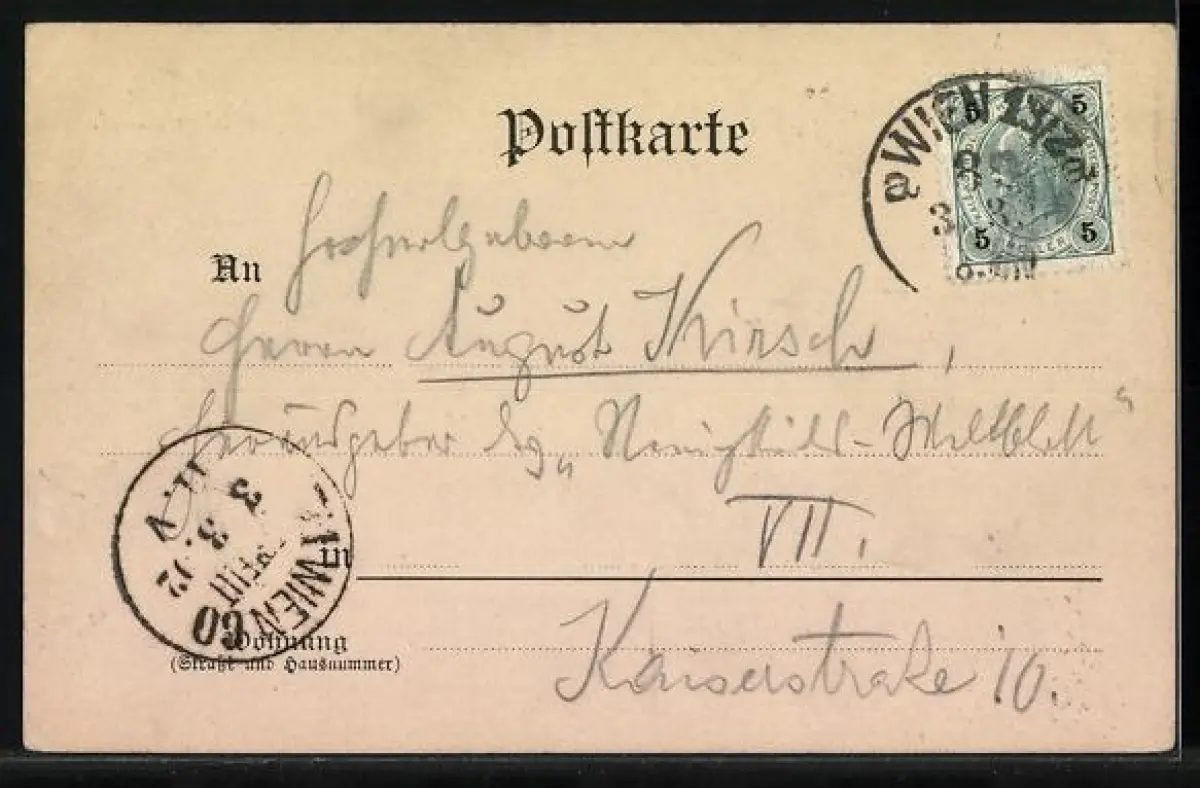 Postkarte
WIEN
5 5
5 5
HELLER
An
Hochwolgeboren
Herrn August Kirsch,
Herausgeber des „Neuigkeits-Weltblatt"
VII.
in
WIEN
3
3
02
60
Wohnung
(Straße und Hausnummer)
Kaiserstraße 10.